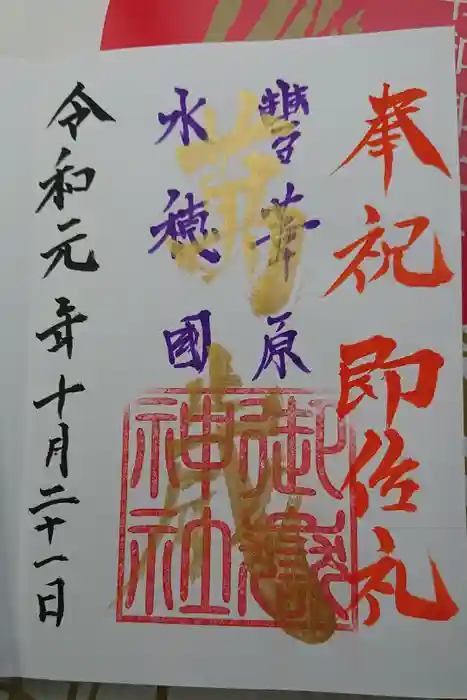 奉祝 即位礼
豐葦原
水穂國
萬歳
御嶽
神社
令和元年十月二十一日